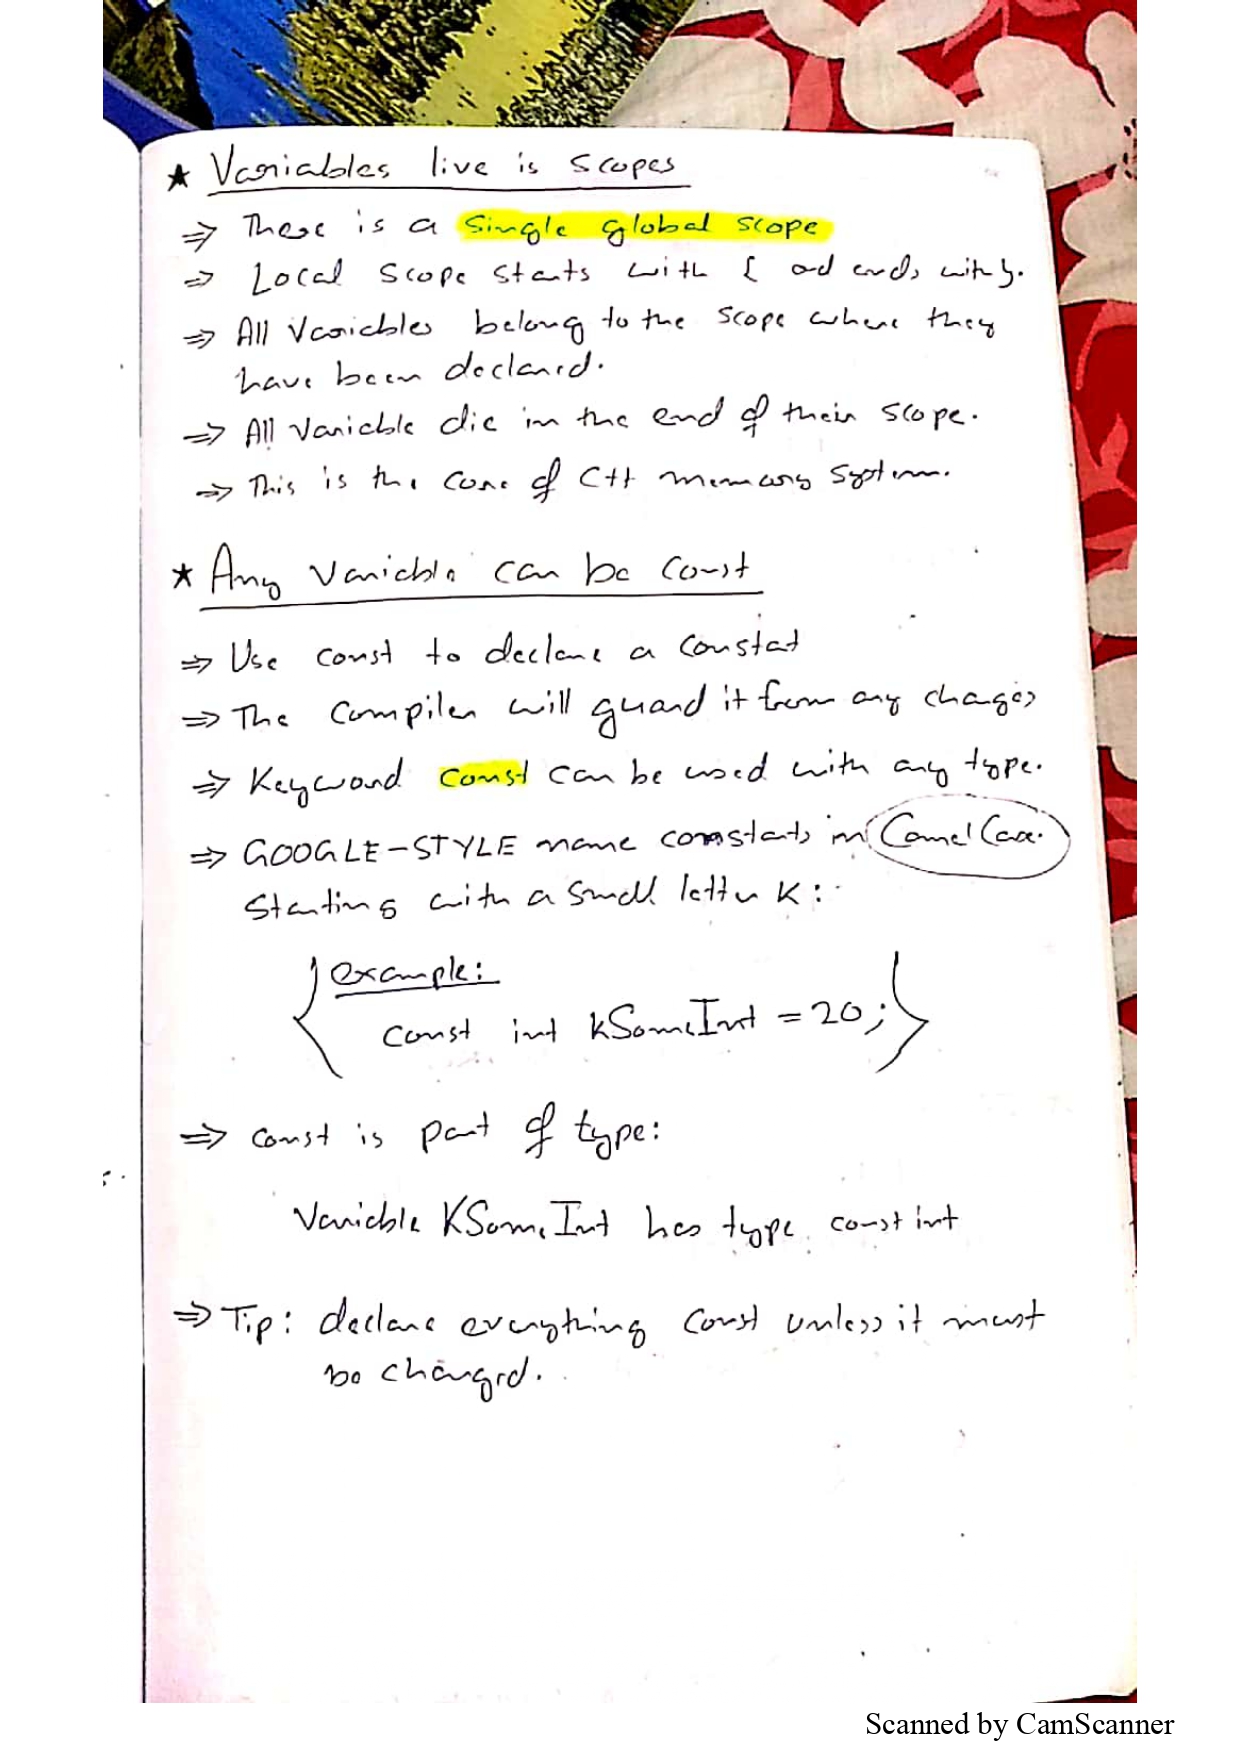 ★ Variables live is scopes
⇒ There is a single global scope
⇒ Local scope starts with { ad ends with }.
⇒ All Variables belong to the scope where they
have been declared.
⇒ All Variable die in the end of their scope.
⇒ This is the core of C++ memory system.
★ Any Variable can be const
⇒ Use const to declare a constat
⇒ The compiler will guard it from any changes
⇒ Keyword const can be used with any type.
⇒ GOOGLE-STYLE name constats in CamelCase.
Starting with a small letter K:
example:
const int kSomeInt = 20;
⇒ const is part of type:
Variable KSomeInt has type const int
⇒ Tip: declare everything const unless it must
be changed.
Scanned by CamScanner